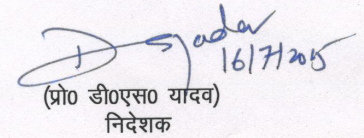 D Syadav
16/7/2015
(प्रो0 डी0एस0 यादव)
निदेशक